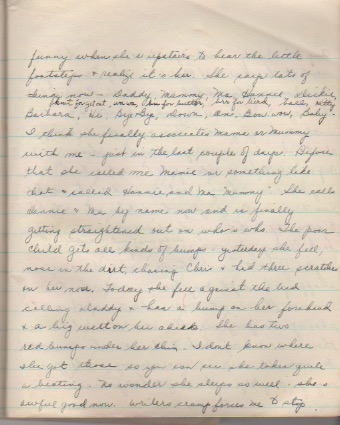 funny when she is upstairs to hear the little
footsteps & realize it's her. She says lots of
things now - Daddy, Mummy, Ma, Hannie,
out for get out, for butter, for bird, ball, kitty
Barbara, Hi, Bye-bye, down, Bow wow, Baby.
I think she finally associates Mama or Mummy
with me - just in the last couple of days. Before
that she called me Mamie or something like
that & called Hannie and Ma "Mummy". She calls
Hannie & Ma by name now and is finally
getting straightened out on who's who. The poor
child gets all kinds of bumps - yesterday she fell,
nose in the dirt, chasing Chris & had three scratches
on her nose. Today she fell against the bed
calling Daddy & has a bump on her forehead
& a big welt on her cheek. She has two
red bumps under her chin. I don't know where
she got those so you can see she takes quite
a beating. No wonder she sleeps so well. She's
awful good now. Writers cramp forces me to stop.